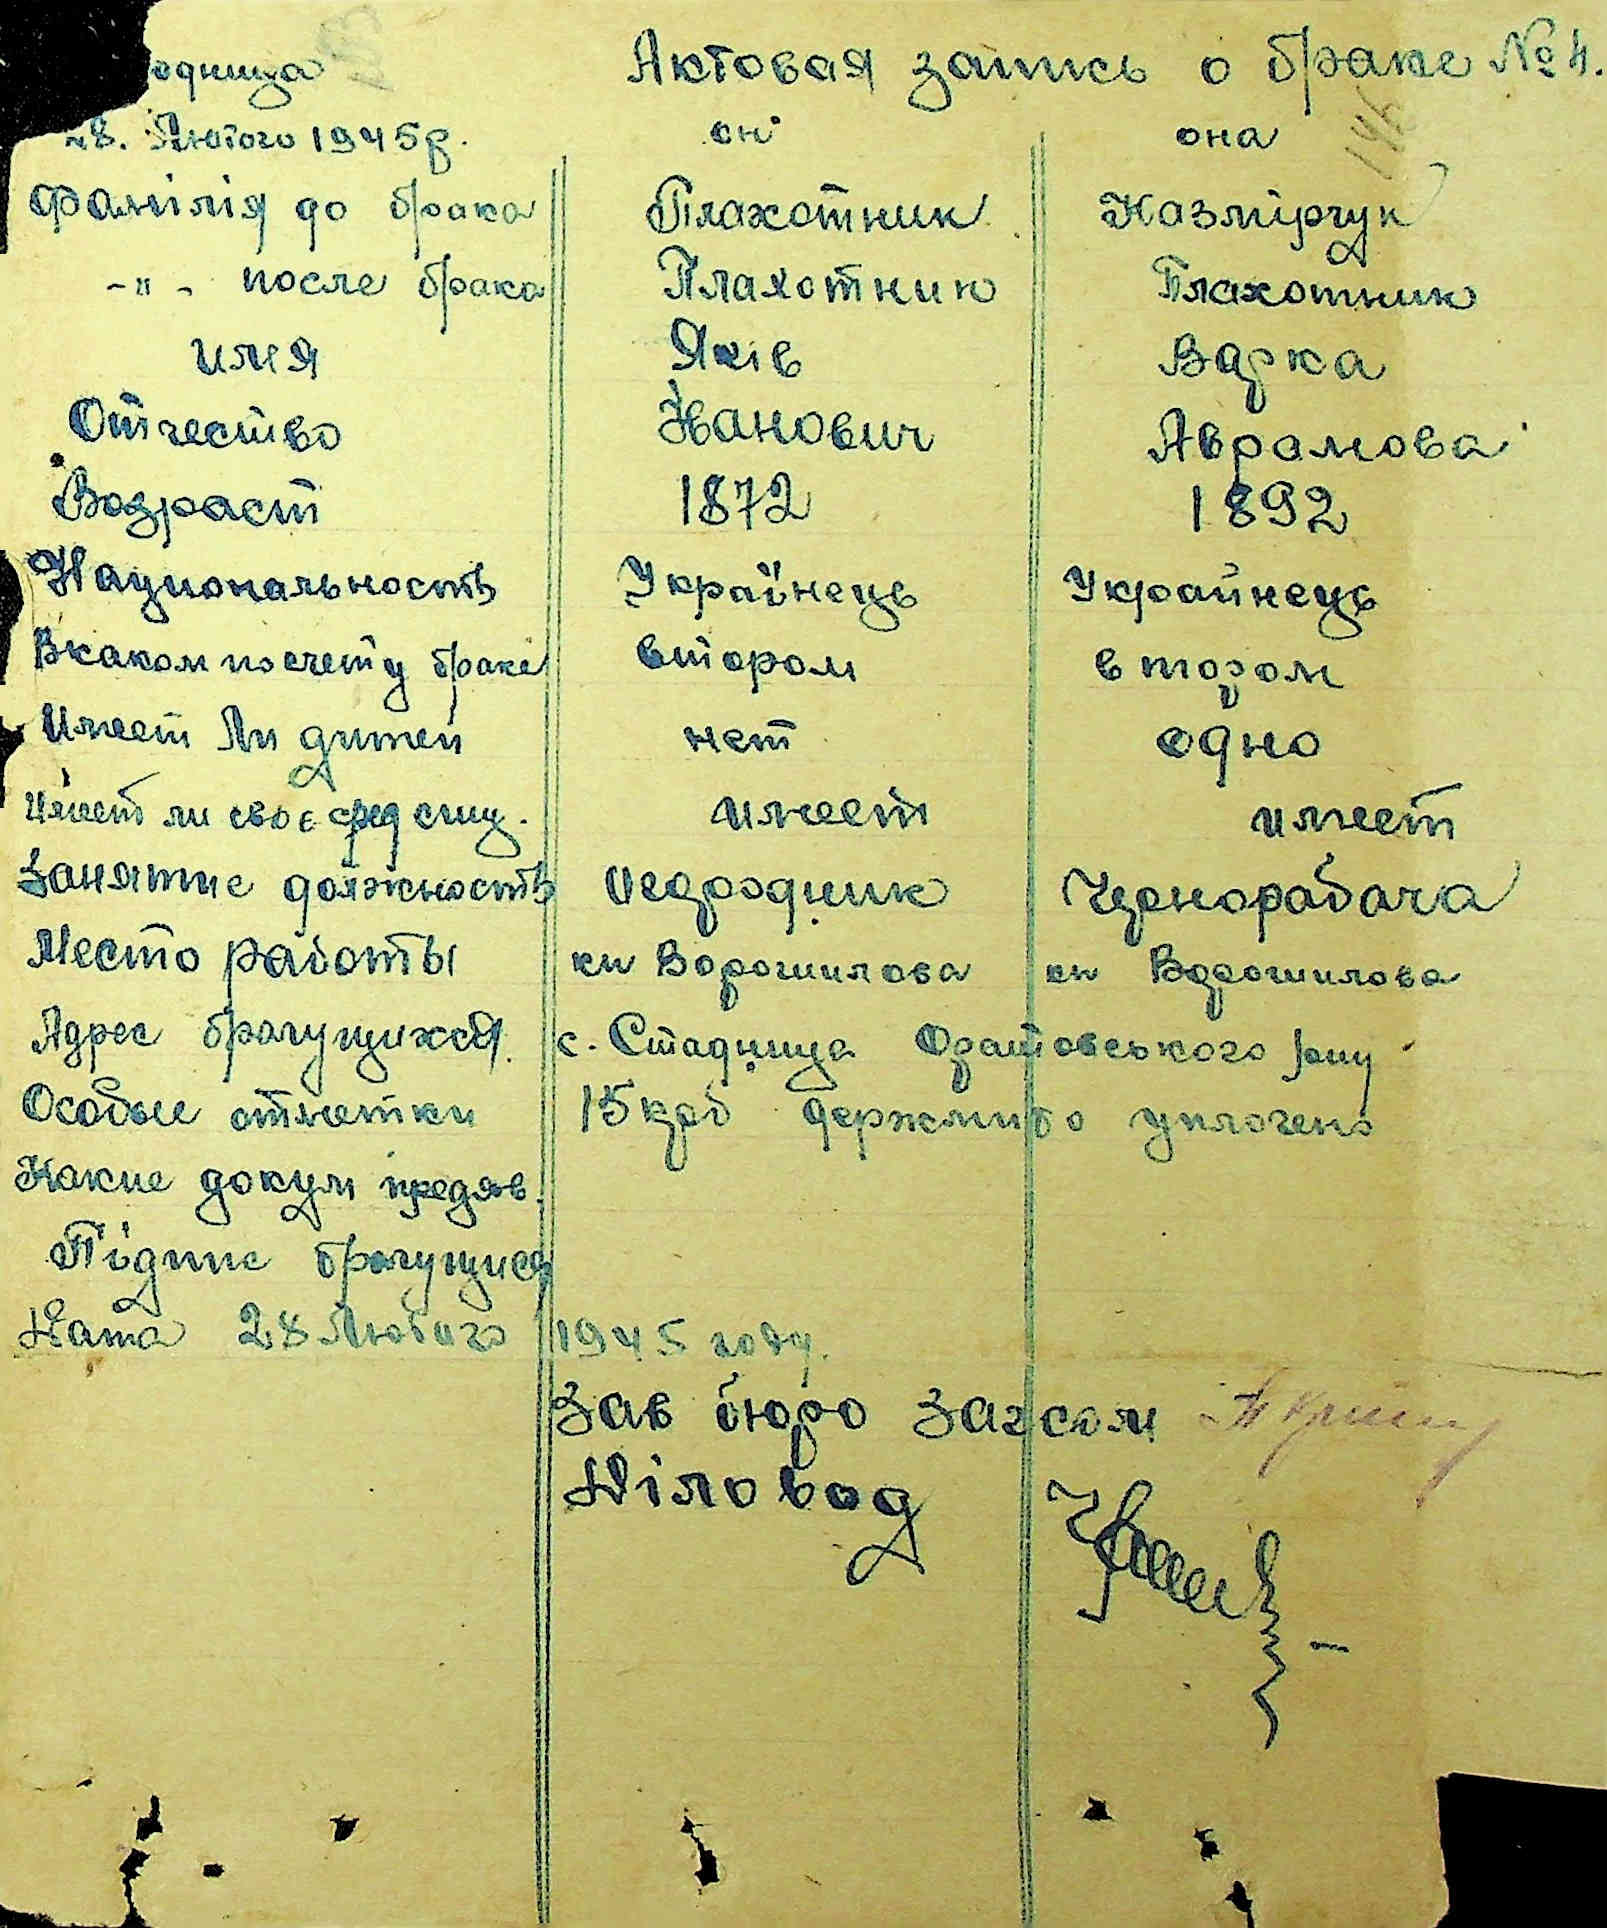 одница Актовая запись о браке № 4.
28. Лютого 1945 р. он она
Фамілія до брака Плахотник Казмірчук
-"- после брака Плахотник Плахотник
имя Яків Варка
Отчество Иванович Аврамова
Возраст 1872 1892
Национальность Українець Украйнець
В каком по счету браке втором втором
Имеет Ли дитей нет одно
Имеет ли своє сред сущ. имеет имеет
Занятие должность Чернорабача
Место работы Ворошилова Ворошилова
Адрес брачущихся. с. Стадница Оратовського р-ну
Особые отметки 15 крб держмито уплочено
Какие докум предяв.
Підпис брачущися
Дата 28 Лютого 1945 году.
Зав бюро загсом
Діловод